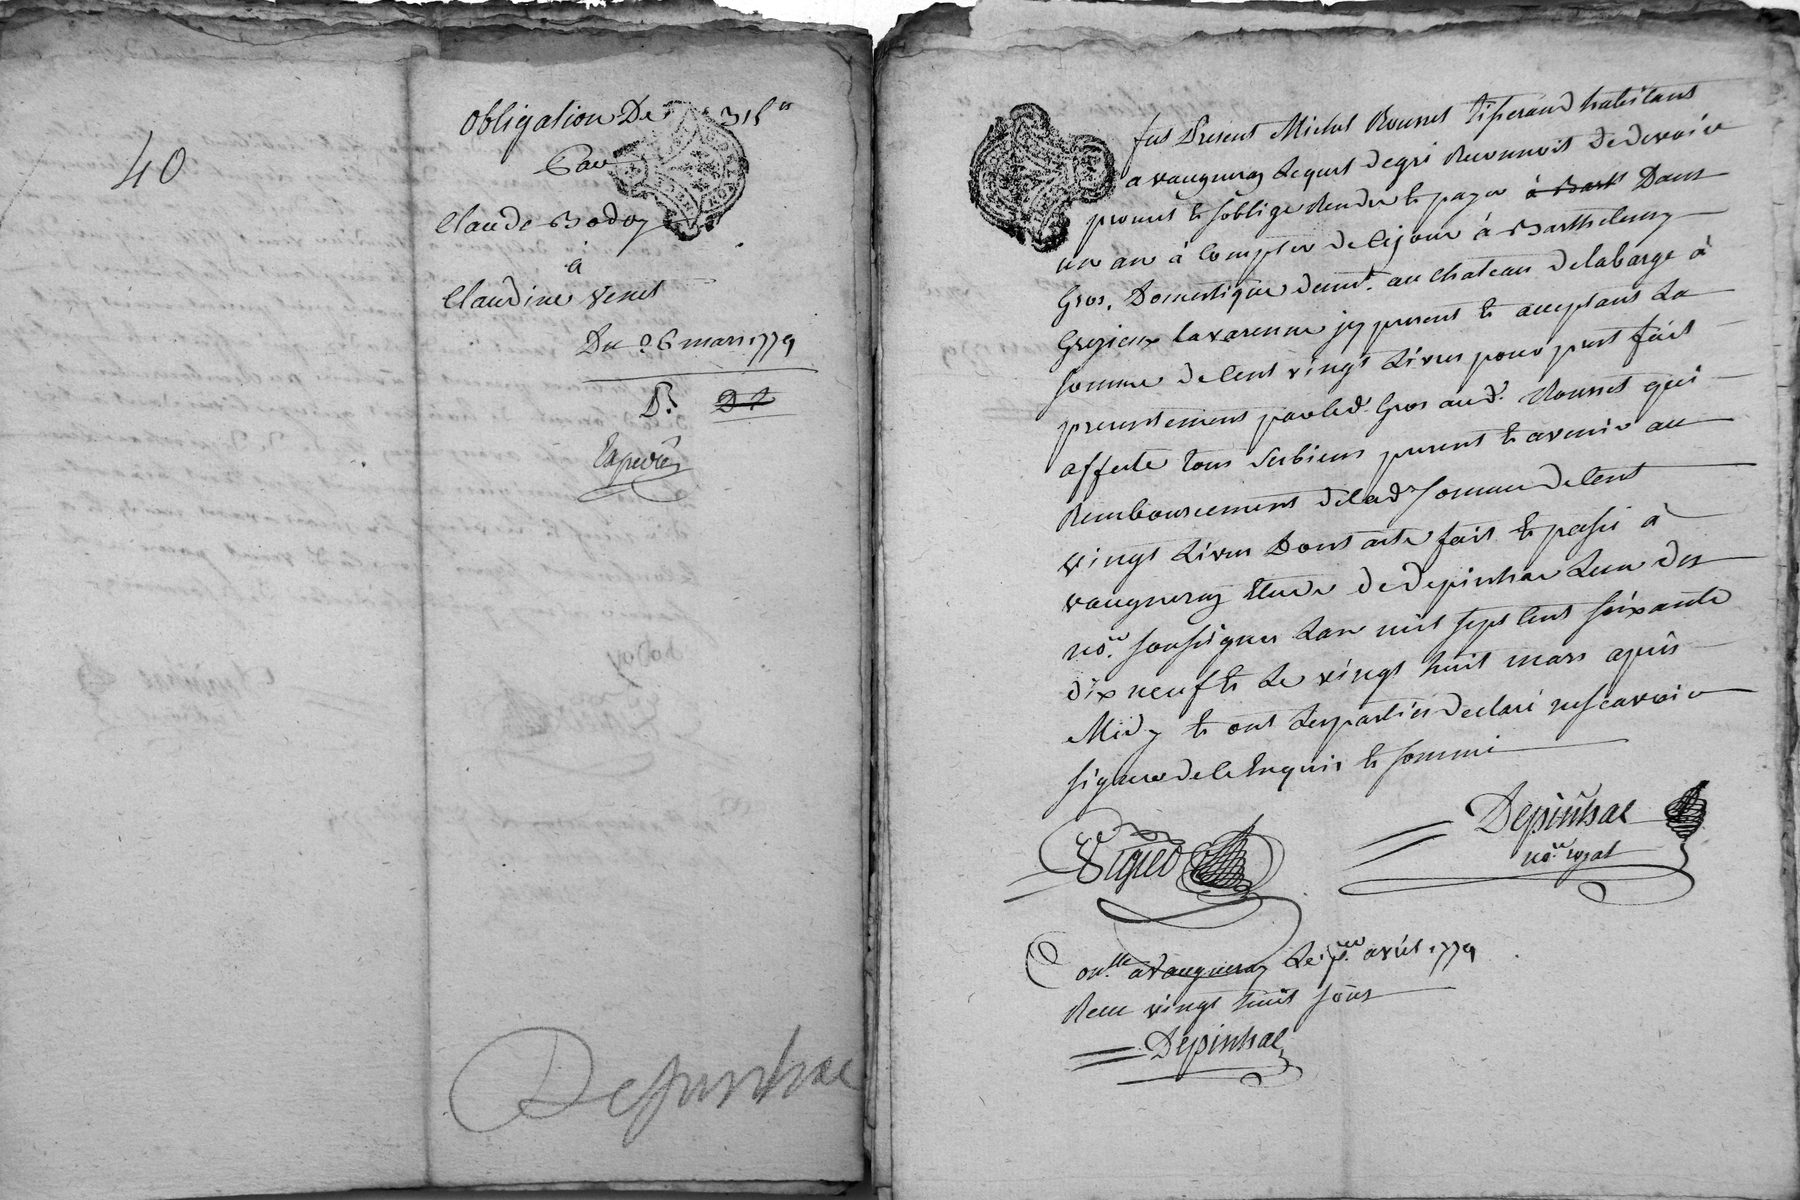 40
Obligation De 315 ᵗˢ
Par
Claude Bodoy
à
Claudine Venet
Du 26 mars 1779
Expediée
Depinhac
fut Present Michel Rousset Tisserand habitant
a vaugneray Lequel degré Reconnoit De devoir
promet et soblige Rendre et payer à Bart Dans
un an à Compter de Cejour à Barthelemy
Gros, Domestique demt. au chateau Delabarge à
Grezieux Lavarenne jcy present et acceptant La
somme De Cent vingt Livres pour prest fait
presentement par led. Gros aud. Rousset qui
affecte tous ses biens present et avenir au
Remboursement Delade somme De Cent
vingt Livres Dont acte fait et passé à
vaugneray Etude De Depinhac Lun des
nore. soussignes Lan mil sept Cent soixante
dix neuf et Le vingt huit mars après
Midy et ont Les parties declaré ne scavoir
signer de ce Enquis et sommé
Depinhac
nore. royal
Conlle. a Vaugneray Le per. avril 1779
Recu vingt huit sous
Depinhac